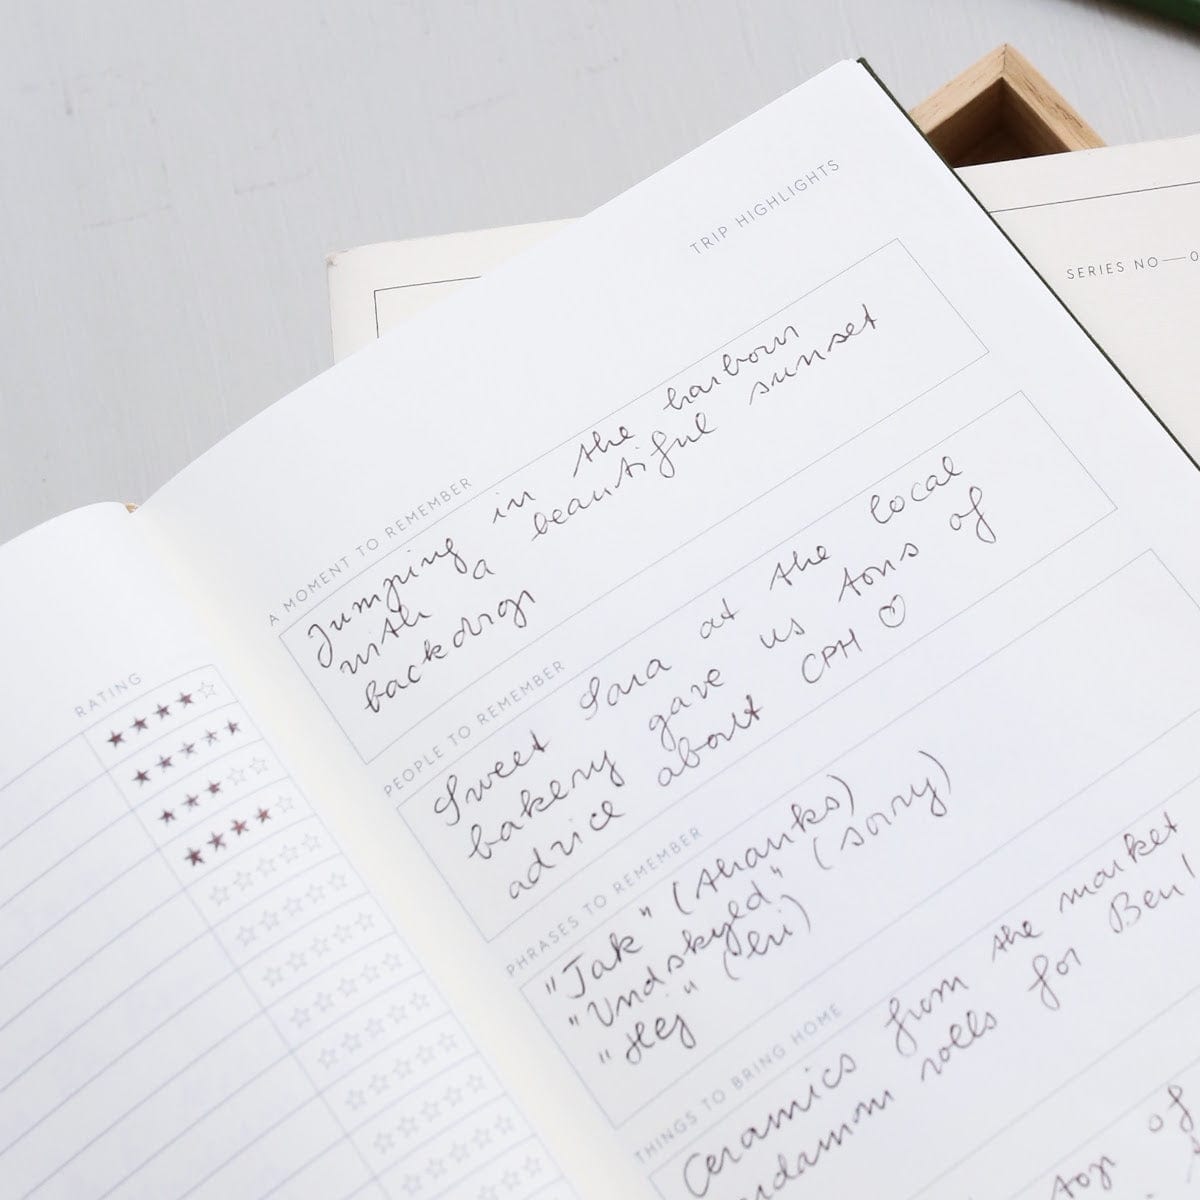 RATING
TRIP HIGHLIGHTS
SERIES NO—0
A MOMENT TO REMEMBER
Jumping in the harbour
with a beautiful sunset
backdrop
PEOPLE TO REMEMBER
Sweet Sara at the local
bakery gave us tons of
advice about CPH ♡
PHRASES TO REMEMBER
"Tak" (thanks)
"Undskyld" (sorry)
"Hej" (hi)
THINGS TO BRING HOME
Ceramics from the market
rdamom rolls for Ben!
top of